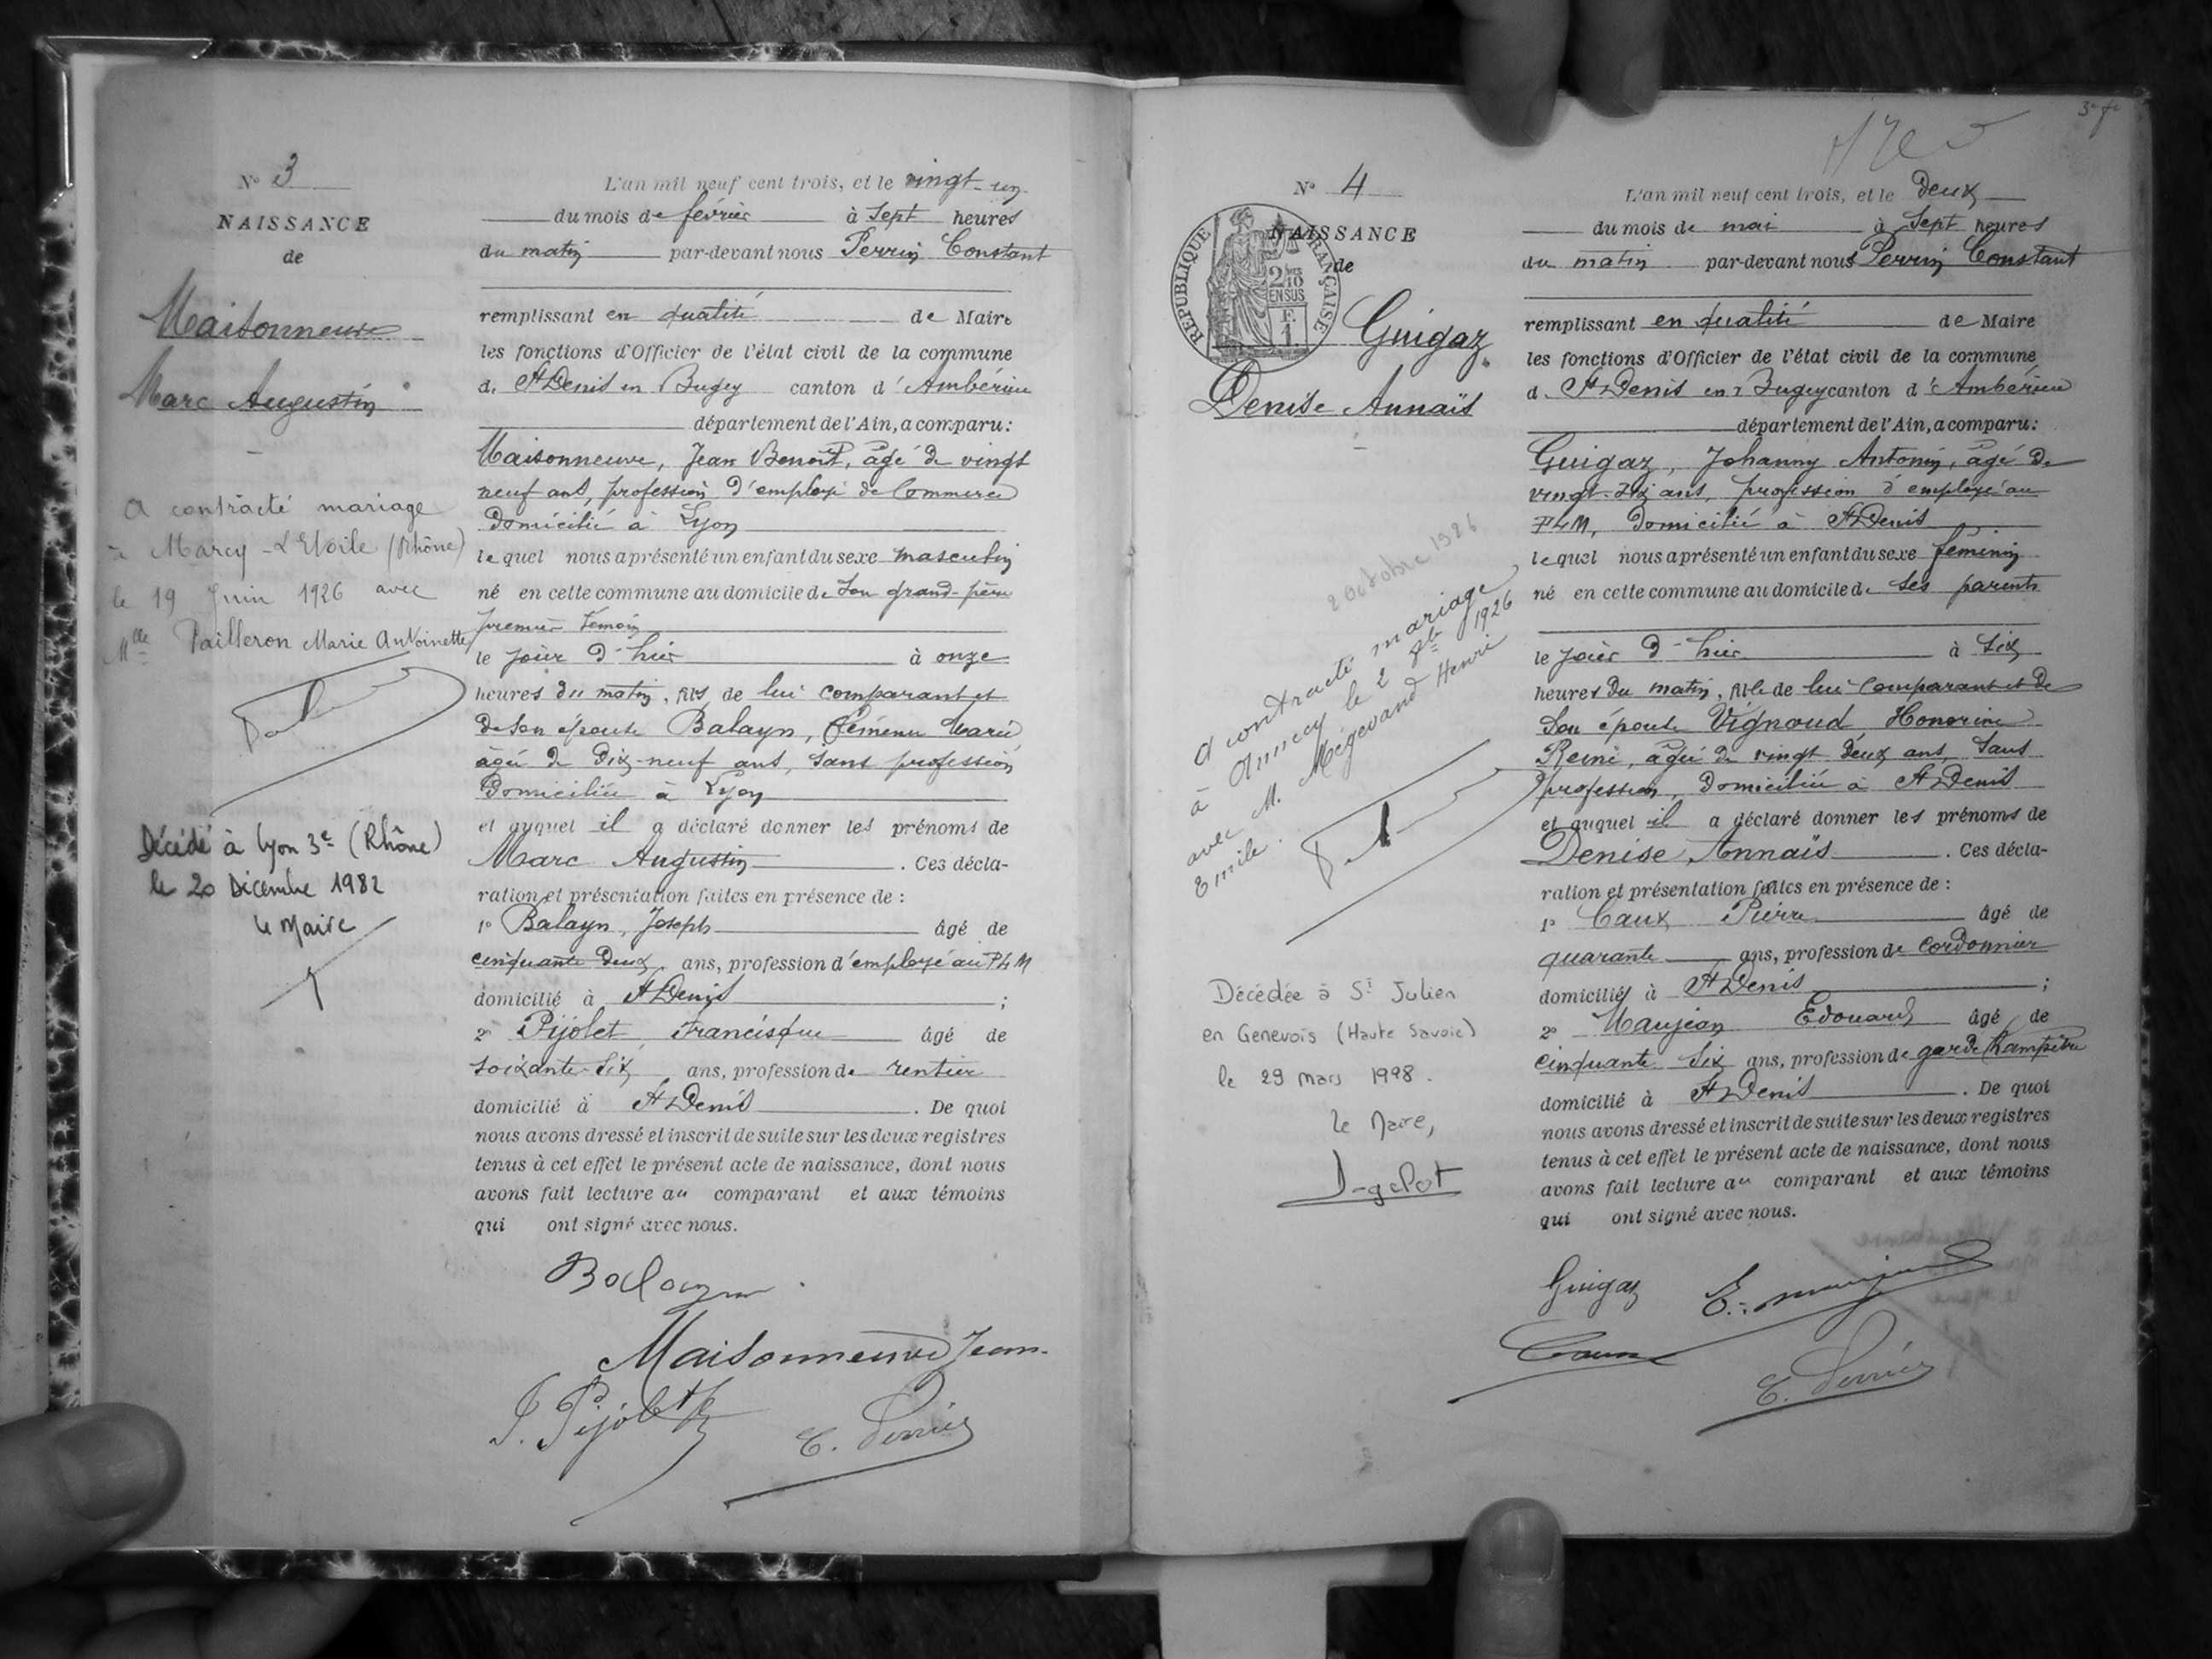 N° 3
NAISSANCE
de
Maisonneuve
Marc Augustin
A contracté mariage
à Marcy-L'Etoile (Rhône)
le 19 Juin 1926 avec
Mlle Pailleron Marie Antoinette
Décédé à Lyon 3e (Rhône)
le 20 Décembre 1982
Le Maire
L'an mil neuf cent trois, et le vingt-un
du mois de février à sept heures
du matin par-devant nous Perrin Constant
remplissant en qualité de Maire
les fonctions d'Officier de l'état civil de la commune
de St Denis en Bugey canton d'Ambérieu
département de l'Ain, a comparu:
Maisonneuve, Jean Benoit, âgé de vingt
neuf ans, profession d'employé de Commerce
domicilié à Lyon
lequel nous a présenté un enfant du sexe masculin
né en cette commune au domicile de son grand-père
premier témoin
le jour d'hier à onze
heures du matin, fils de lui comparant et
de son épouse Balayn, Marie
âgée de dix-neuf ans, sans profession
domiciliée à Lyon
et auquel il a déclaré donner les prénoms de
Marc Augustin. Ces décla-
ration et présentation faites en présence de :
1° Balayn, Joseph âgé de
cinquante deux ans, profession d'employé au PLM
domicilié à St Denis ;
2° Pijolet, Francisque âgé de
soixante-six ans, profession de rentier
domicilié à St Denis. De quoi
nous avons dressé et inscrit de suite sur les deux registres
tenus à cet effet le présent acte de naissance, dont nous
avons fait lecture au comparant et aux témoins
qui ont signé avec nous.
Balayn
Maisonneuve Jean
J. Pijolet
C. Perrin
3e f
N° 4
NAISSANCE
de
REPUBLIQUE FRANÇAISE
2/10 EN SUS
F. 1
Guigaz
Denise Annaïs
2 octobre 1926
A contracté mariage
à Annecy le 2 8bre 1926
avec M. Mégevand Henri
Emile.
Décédée à St Julien
en Genevois (Haute Savoie)
le 29 mars 1998.
Le Maire,
L'an mil neuf cent trois, et le deux
du mois de mai à sept heures
du matin par-devant nous Perrin Constant
remplissant en qualité de Maire
les fonctions d'Officier de l'état civil de la commune
de St Denis en Bugey canton d'Ambérieu
département de l'Ain, a comparu:
Guigaz, Johanny Antonin, âgé de
vingt-six ans, profession d'employé au
PLM, domicilié à St Denis
lequel nous a présenté un enfant du sexe féminin
né en cette commune au domicile de ses parents
le jour d'hier à six
heures du matin, fille de lui comparant et de
son épouse Vignoud Honorine
Reine, âgée de vingt deux ans, sans
profession, domiciliée à St Denis
et auquel il a déclaré donner les prénoms de
Denise Annaïs. Ces décla-
ration et présentation faites en présence de :
1° Caux Pierre âgé de
quarante ans, profession de cordonnier
domicilié à St Denis ;
2° Maujean Edouard âgé de
cinquante six ans, profession de garde champêtre
domicilié à St Denis. De quoi
nous avons dressé et inscrit de suite sur les deux registres
tenus à cet effet le présent acte de naissance, dont nous
avons fait lecture au comparant et aux témoins
qui ont signé avec nous.
Guigaz E. Maujean
Caux
C. Perrin